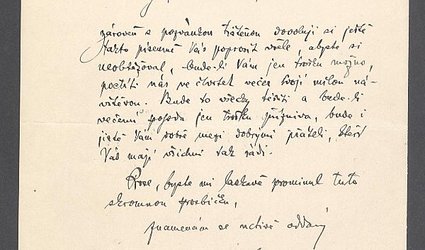 zároveň s pozvánkou tištěnou dovoluji si ještě
takto písemně Vás poprosit vřele, abyste si
neobtěžoval, bude-li Vám jen trošku možno,
poctíti nás ve čtvrtek večer svojí milou ná-
vštěvou. Bude to všecky těšiti a bude-li
večerní pohoda jen trošku příznivá, bude i
jistě Vám dobře mezi dobrými přáteli, kteří
Vás mají všichni tak rádi.
Prose, byste mi laskavě prominul tuto
skromnou prosbičku,
znamenám se uctivě oddaný